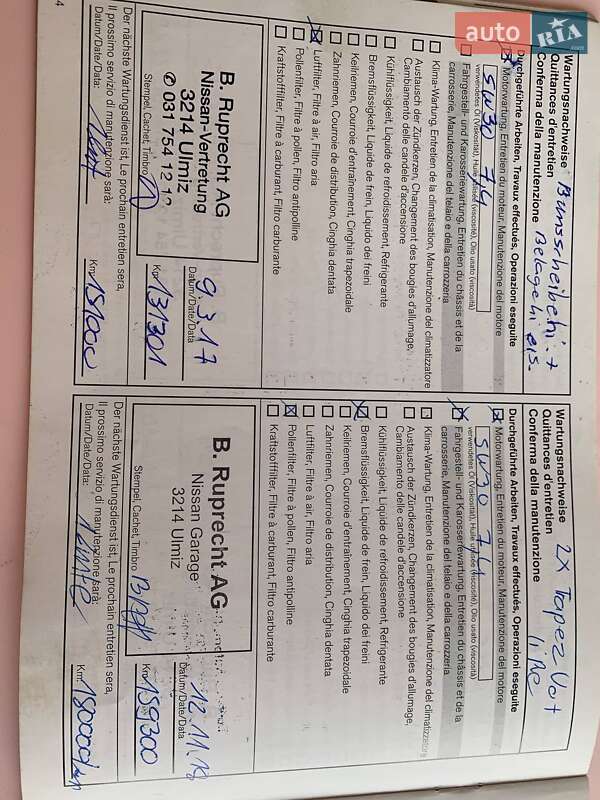 auto RIA.com
Wartungsnachweise
Quittances d'entretien
Conferma della manutenzione
Durchgeführte Arbeiten, Travaux effectués, Operazioni eseguite
Motorwartung, Entretien du moteur, Manutenzione del motore
5W30 7,4
verwendetes Öl (Viskosität), Huile utilisée (viscosité), Olio usato (viscosità)
Fahrgestell- und Karosseriewartung, Entretien du châssis et de la
carrosserie, Manutenzione del telaio e della carrozzeria
Klima-Wartung, Entretien de la climatisation, Manutenzione del climatizzatore
Austausch der Zündkerzen, Changement des bougies d'allumage,
Cambiamento delle candele d'accensione
Kühlflüssigkeit, Liquide de refroidissement, Refrigerante
Bremsflüssigkeit, Liquide de frein, Liquido dei freini
Keilriemen, Courroie d'entraînement, Cinghia trapezoidale
Zahnriemen, Courroie de distribution, Cinghia dentata
Luftfilter, Filtre à air, Filtro aria
Pollenfilter, Filtre à pollen, Filtro antipolline
Kraftstofffilter, Filtre à carburant, Filtro carburante
B. Ruprecht AG
Nissan-Vertretung
3214 Ulmiz
✆ 031 754 12 12
9.3.17
Datum/Date/Data
Stempel, Cachet, Timbro
Km 131301
Der nächste Wartungsdienst ist, Le prochain entretien sera,
Il prossimo servizio di manutenzione sarà:
Datum/Date/Data:
Km 151000
4
Wartungsnachweise
Quittances d'entretien
Conferma della manutenzione
2x Trapez Vo+
li Re
Durchgeführte Arbeiten, Travaux effectués, Operazioni eseguite
Motorwartung, Entretien du moteur, Manutenzione del motore
5W30 7,4
verwendetes Öl (Viskosität), Huile utilisée (viscosité), Olio usato (viscosità)
Fahrgestell- und Karosseriewartung, Entretien du châssis et de la
carrosserie, Manutenzione del telaio e della carrozzeria
Klima-Wartung, Entretien de la climatisation, Manutenzione del climatizzatore
Austausch der Zündkerzen, Changement des bougies d'allumage,
Cambiamento delle candele d'accensione
Kühlflüssigkeit, Liquide de refroidissement, Refrigerante
Bremsflüssigkeit, Liquide de frein, Liquido dei freini
Keilriemen, Courroie d'entraînement, Cinghia trapezoidale
Zahnriemen, Courroie de distribution, Cinghia dentata
Luftfilter, Filtre à air, Filtro aria
Pollenfilter, Filtre à pollen, Filtro antipolline
Kraftstofffilter, Filtre à carburant, Filtro carburante
B. Ruprecht AG
Nissan Garage
3214 Ulmiz
12.11.18
Datum/Date/Data
Stempel, Cachet, Timbro
Km 159300
Der nächste Wartungsdienst ist, Le prochain entretien sera,
Il prossimo servizio di manutenzione sarà:
Datum/Date/Data:
Km 180000